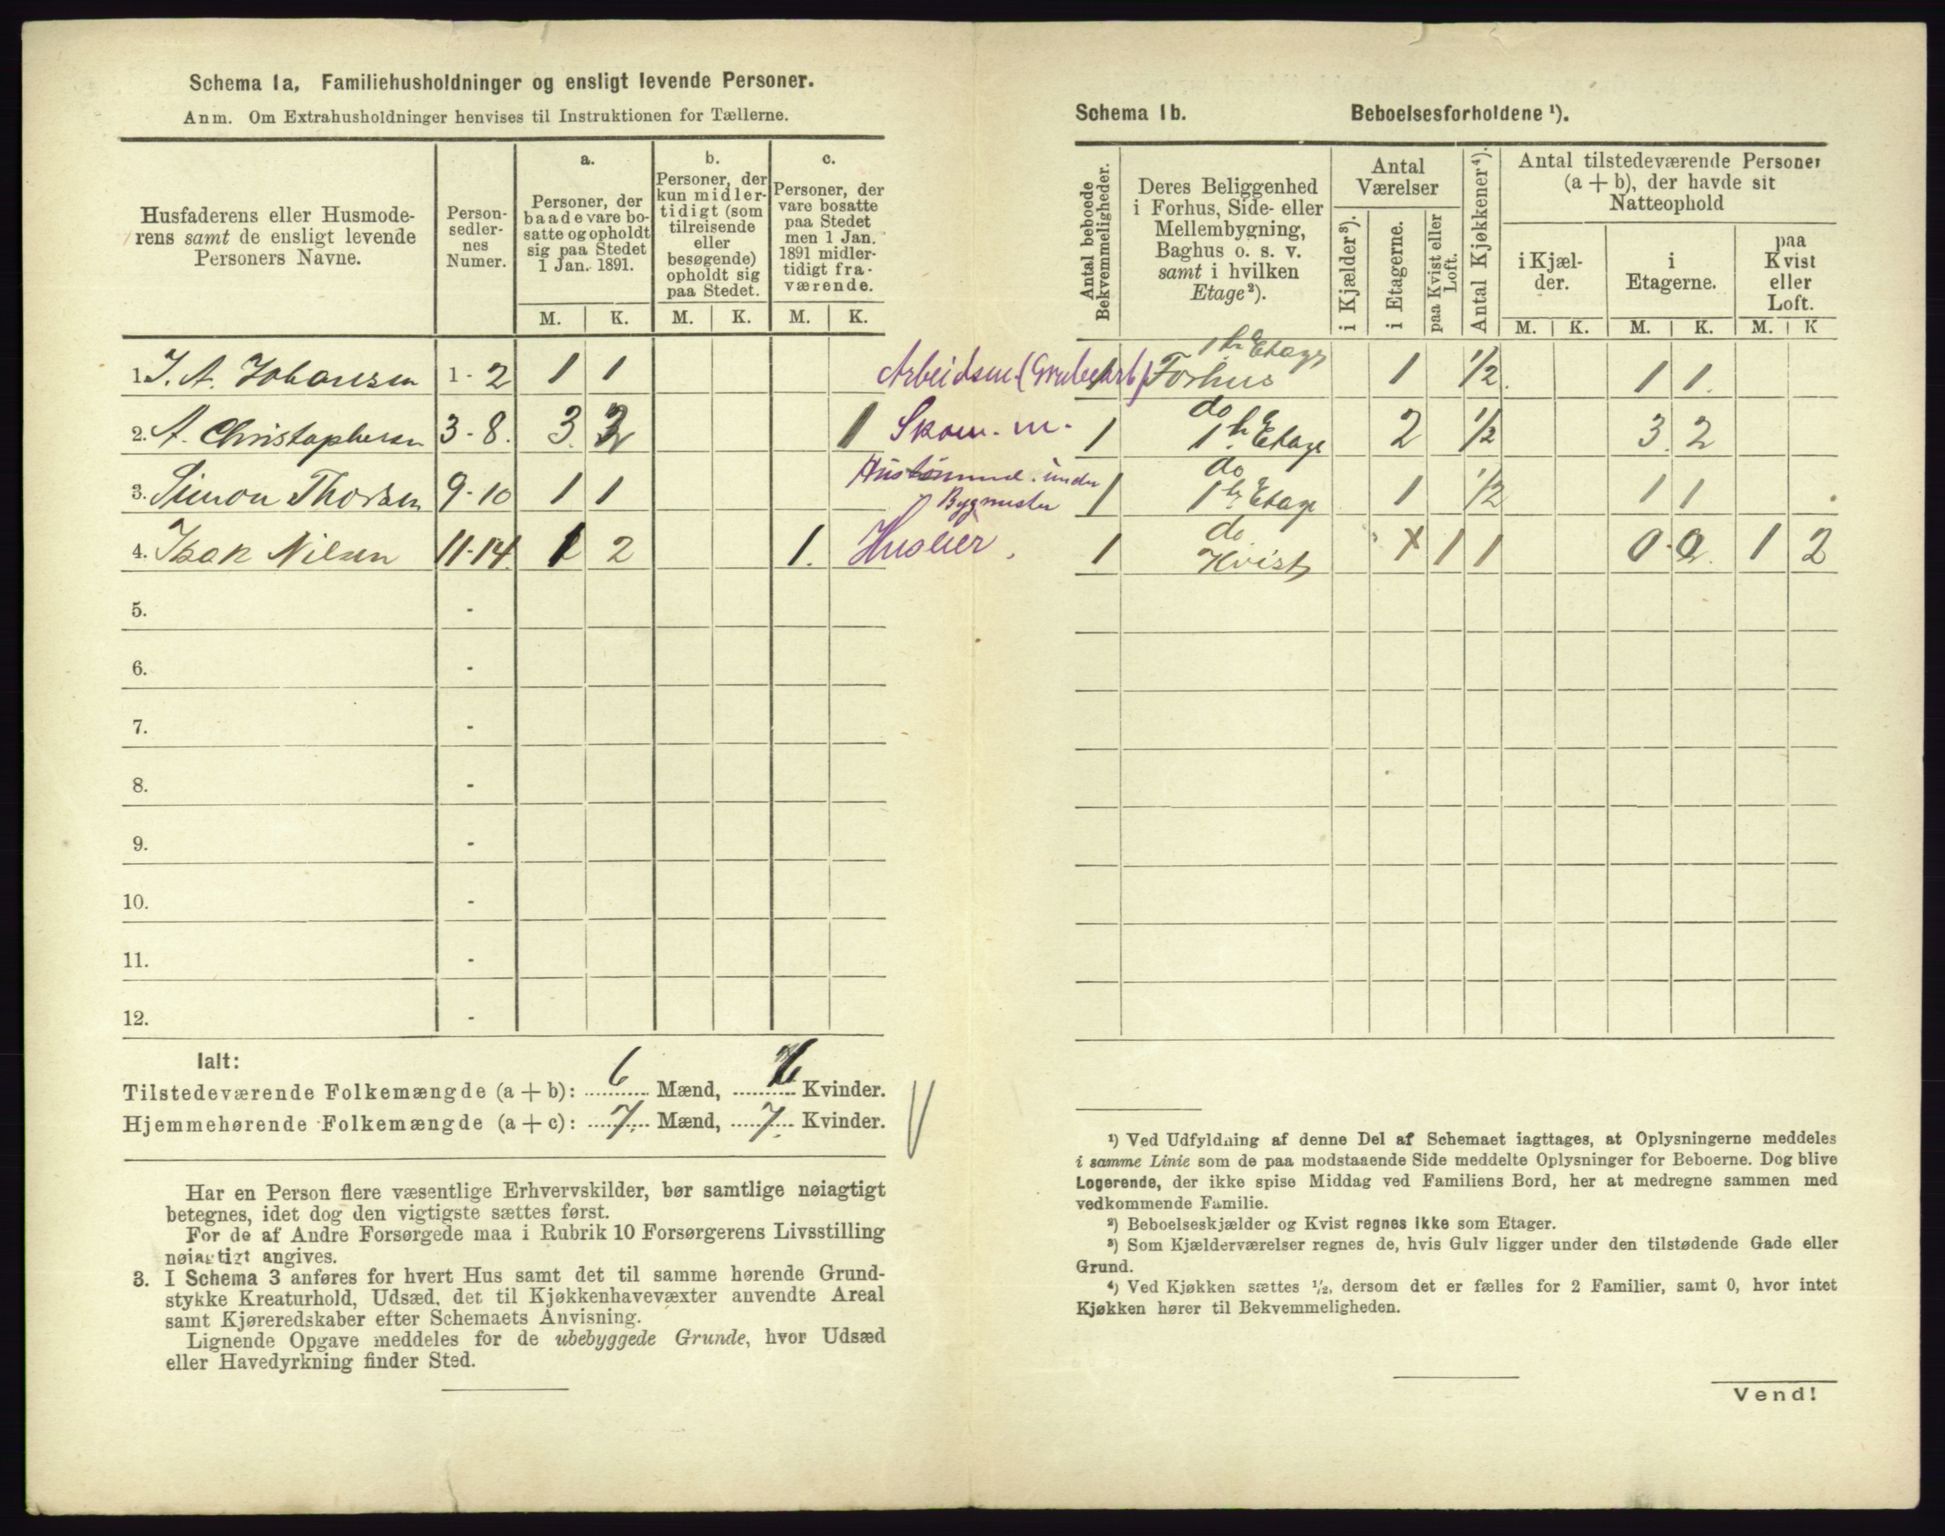 Schema 1a, Familiehusholdninger og ensligt levende Personer.
Anm. Om Extrahusholdninger henvises til Instruktionen for Tællerne.
Husfaderens eller Husmode-
rens samt de ensligt levende
Personers Navne.
Person-
sedler-
nes
Numer.
a.
Personer, der
baade vare bo-
satte og opholdt
sig paa Stedet
1 Jan. 1891.
b.
Personer, der
kun midler-
tidigt (som
tilreisende
eller
besøgende)
opholdt sig
paa Stedet.
c.
Personer, der
vare bosatte
paa Stedet
men 1 Jan.
1891 midler-
tidigt fra-
værende.
M. K. M. K. M. K.
1. J. A. Johansen 1 - 2 1 1 Arbeidsm (Grubearb)
2. A. Christophersen 3 - 8. 3. 2 1 Skom. m.
3. Simon Thorsen 9 - 10 1 1 under
Bygmester
4. Isak Nilsen 11 - 14 1 2 1. Huslier.
5. -
6. -
7. -
8. -
9. -
10. -
11. -
12. -
Ialt:
Tilstedeværende Folkemængde (a + b): 6 Mænd, 6 Kvinder.
Hjemmehørende Folkemængde (a + c): 7. Mænd, 7. Kvinder.
Har en Person flere væsentlige Erhvervskilder, bør samtlige nøiagtigt
betegnes, idet dog den vigtigste sættes først.
For de af Andre Forsørgede maa i Rubrik 10 Forsørgerens Livsstilling
nøiagtigt angives.
3. I Schema 3 anføres for hvert Hus samt det til samme hørende Grund-
stykke Kreaturhold, Udsæd, det til Kjøkkenhavevæxter anvendte Areal
samt Kjøreredskaber efter Schemaets Anvisning.
Lignende Opgave meddeles for de ubebyggede Grunde, hvor Udsæd
eller Havedyrkning finder Sted.
Schema 1b. Beboelsesforholdene ¹).
Antal beboede
Bekvemmeligheder.
Deres Beliggenhed
i Forhus, Side- eller
Mellembygning,
Baghus o. s. v.
samt i hvilken
Etage²).
Antal
Værelser
i Kjælder³).
i Etagerne.
paa Kvist eller
Loft.
Antal Kjøkkener⁴).
Antal tilstedeværende Personer
(a + b), der havde sit
Natteophold
i Kjæl-
der.
i
Etagerne.
paa
Kvist
eller
Loft.
M. K. M. K. M. K
1ste Etage
1 Forhus 1 1/2 1 1.
do
1 1ste Etage 2 1/2 3 2
do
1 1ste Etage 1 1/2 1 1
do
1 Kvist 1 1 0 0. 1 2
¹) Ved Udfyldning af denne Del af Schemaet iagttages, at Oplysningerne meddeles
i samme Linie som de paa modstaaende Side meddelte Oplysninger for Beboerne. Dog blive
Logerende, der ikke spise Middag ved Familiens Bord, her at medregne sammen med
vedkommende Familie.
²) Beboelseskjælder og Kvist regnes ikke som Etager.
³) Som Kjælderværelser regnes de, hvis Gulv ligger under den tilstødende Gade eller
Grund.
⁴) Ved Kjøkken sættes ½, dersom det er fælles for 2 Familier, samt 0, hvor intet
Kjøkken hører til Bekvemmeligheden.
Vend!